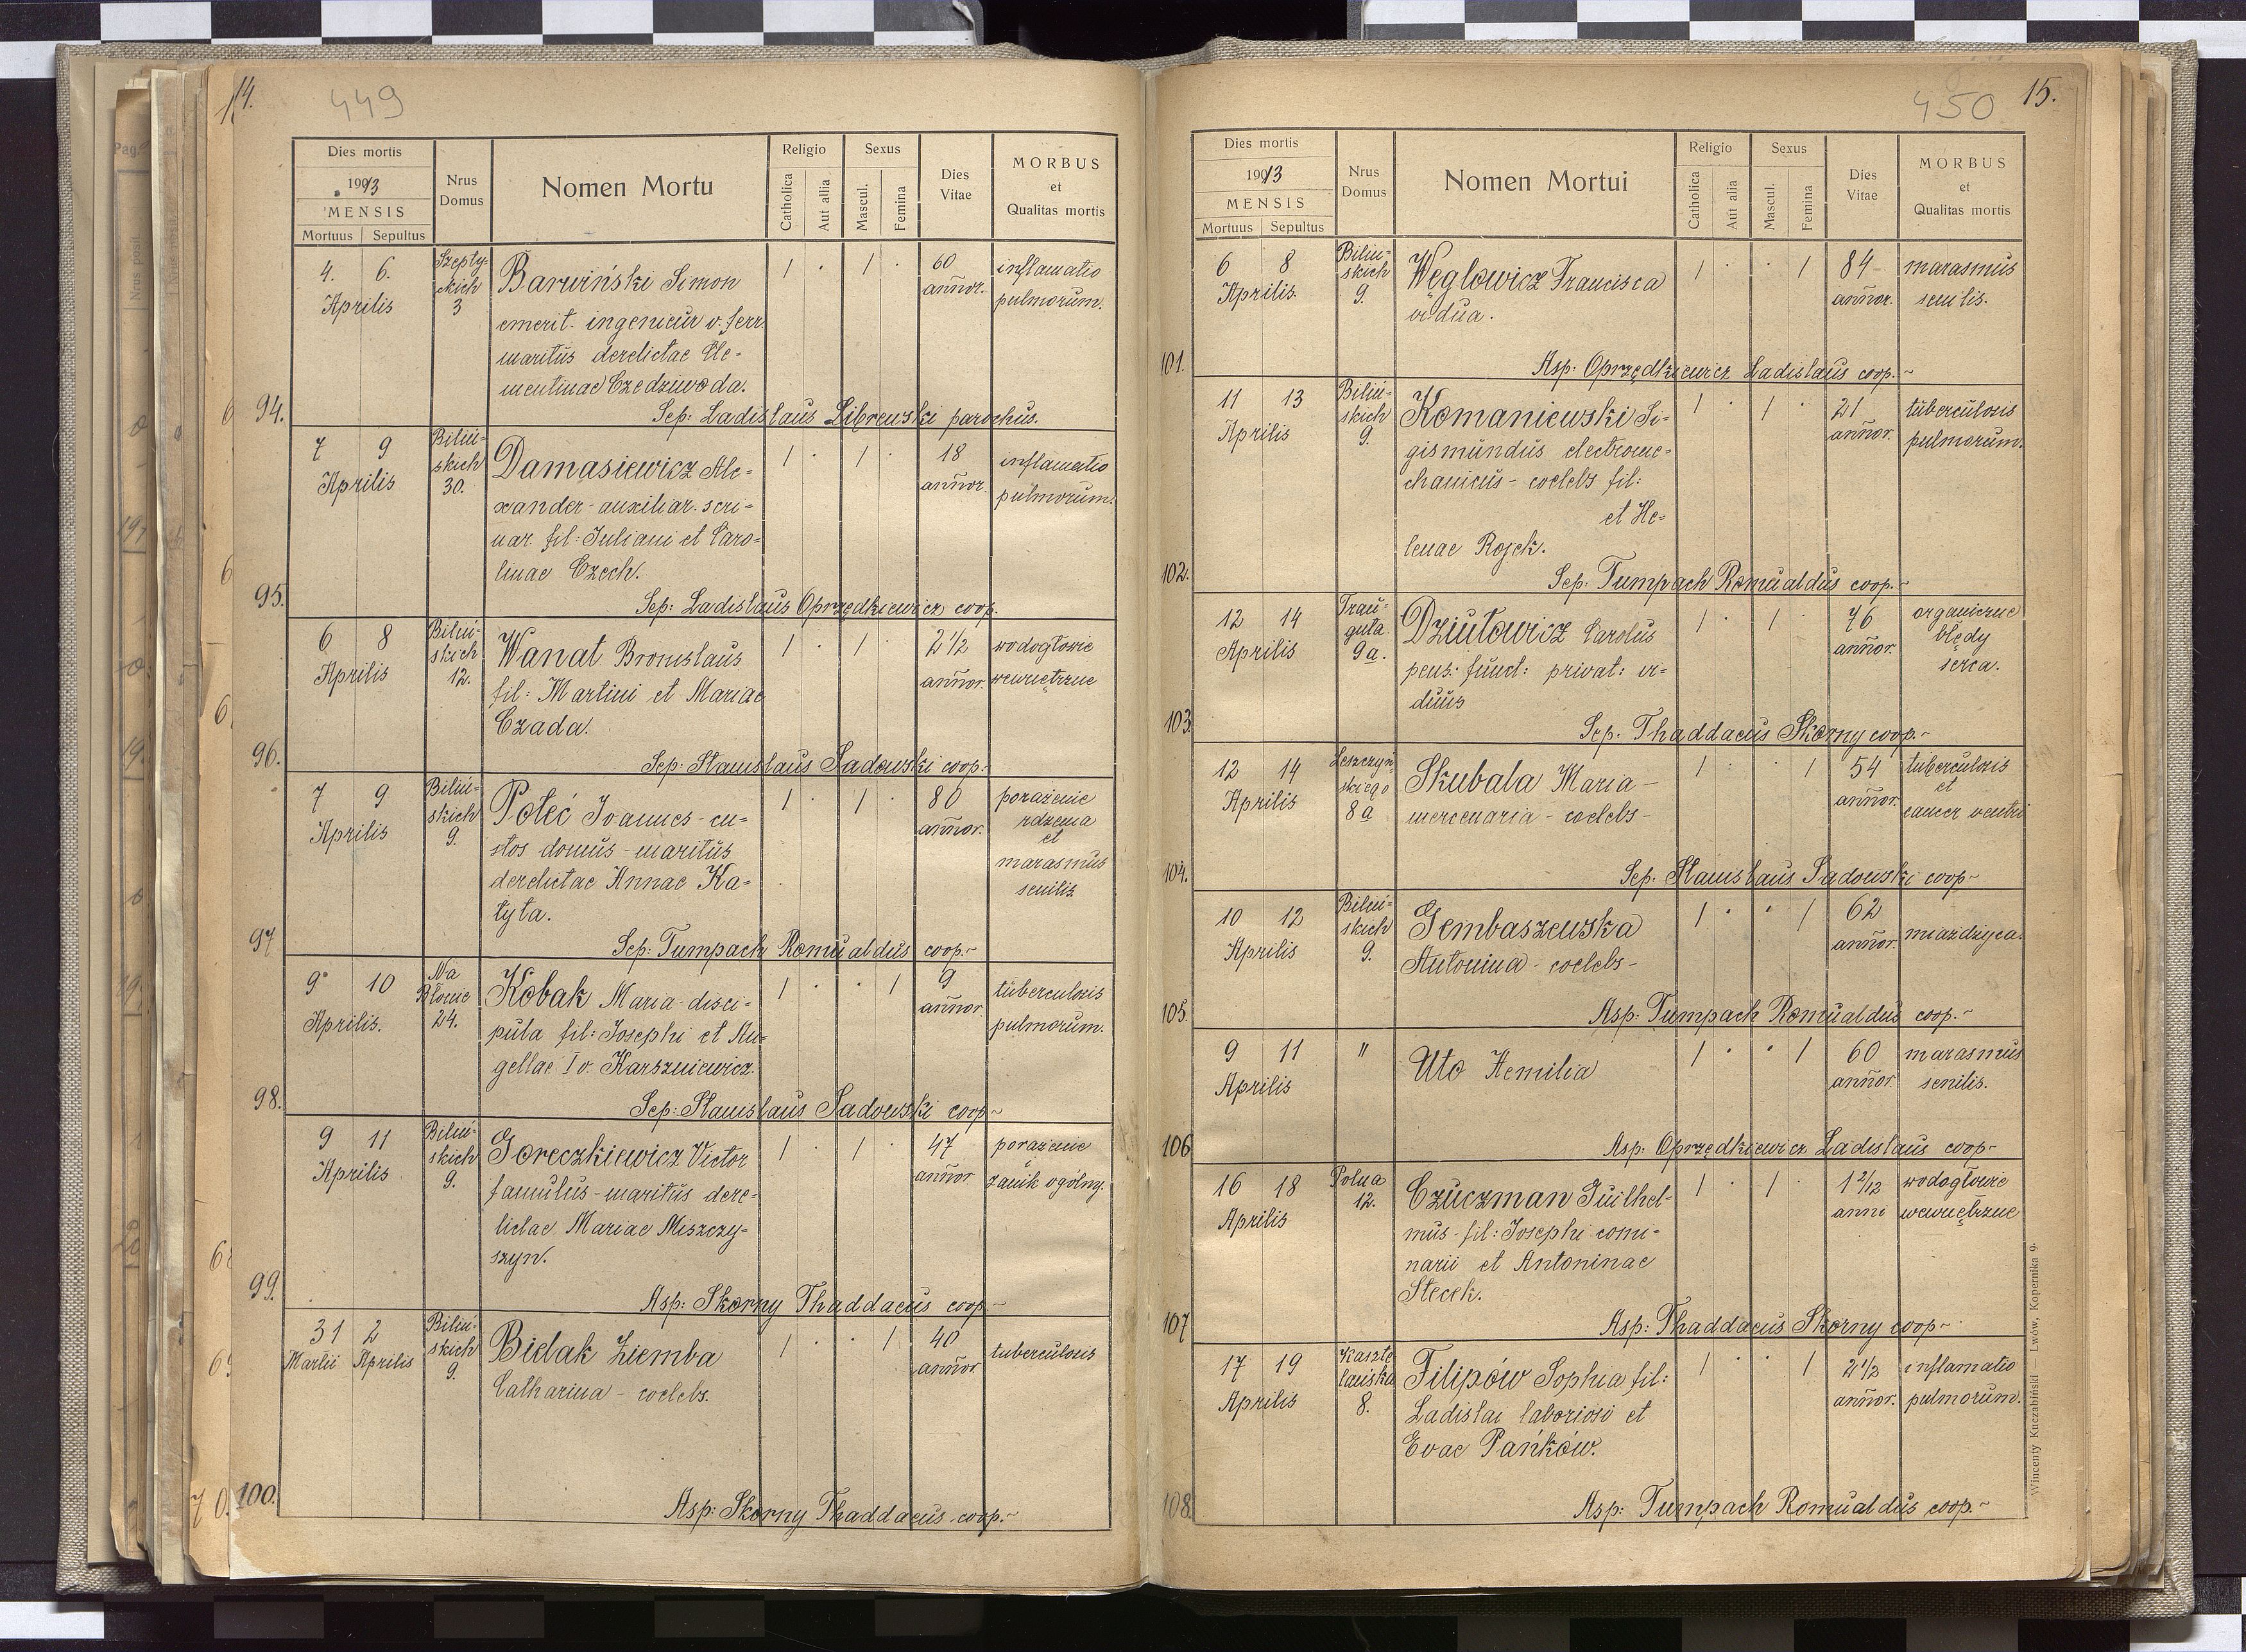 14.
449
Dies mortis
1913
MENSIS
Mortuus Sepultus
Nrus Domus
Nomen Mortu
Religio
Catholica
Aut allia
Sexus
Mascul.
Femina
Dies Vitae
MORBUS
et
Qualitas mortis
94.
4. 6.
Aprilis
Szepty-
ckich
3
Barwiński Simon
emerit. ingenieur v. ferr.
maritus derelictae Cle-
mentinae Czedziwoda.
1 . 1 .
60
annor.
inflamatio
pulmorum.
Sep: Ladislaus Librewski parochus.
95.
7 9
Aprilis
Biliń-
skich
30.
Damasiewicz Ale-
xander - auxiliar. scri-
nar. fil: Juliani et Caro-
linae Czech.
1 . 1 .
18
annor.
inflamatio
pulmorum.
Sep: Ladislaus Oprzędkiewicz coop.
96.
6 8
Aprilis
Biliń-
skich
12.
Wanat Bronislaus
fil: Martini et Mariae
Czada.
1 . 1 .
2 1/2
annor.
wodogłowie
wewnętrzne
Sep: Stanislaus Sadowski coop.
97
7 9
Aprilis
Biliń-
skich
9.
Połeć Joannes - cu-
stos domus - maritus
derelictae Annae Ka-
tyta.
1 . 1 .
80
annor.
porażenie
rdzenia
et
marasmus
senilis.
Sep: Tumpach Romualdus coop.
98.
9 10
Aprilis.
Na
Błonie
24.
Kobak Maria - disci-
pula fil: Josephi et An-
gellae I v. Karszniewicz.
1 . . 1
9
annor.
tuberculosis
pulmorum.
Sep: Stanislaus Sadowski coop
99.
9 11
Aprilis
Biliń-
skich
9.
Goreczkiewicz Victor
famulus - maritus dere-
lictae Mariae Miszczy-
szyn.
1 . 1 .
47
annor
porażenie
i
zanik ogólny.
Asp: Skorny Thaddaeus coop.
100.
31 2
Martii Aprilis
Biliń-
skich
9.
Bielak Ziemba
Catharina - coelebs.
1 . . 1
40
annor.
tuberculosis
Asp: Skorny Thaddaeus coop.
450
15.
Dies mortis
1913
MENSIS
Mortuus Sepultus
Nrus Domus
Nomen Mortui
Religio
Catholica
Aut alia
Sexus
Mascul.
Femina
Dies Vitae
MORBUS
et
Qualitas mortis
101.
6 8
Aprilis.
Biliń-
skich
9.
Węglowicz Francisca
vidua.
1 . . 1
84
annor.
marasmus
senilis.
Asp: Oprzędkiewicz Ladislaus coop.
102.
11 13
Aprilis
Biliń-
skich
9.
Komaniewski Si-
gismundus electrome-
chanicus - coelebs fil:
et He-
lenae Rojek.
1 . 1 .
21
annor.
tuberculosis
pulmorum.
Sep: Tumpach Romualdus coop.
103
12 14
Aprilis
Trau-
guta
9a.
Dziutowicz Carolus
pens: funct: privat: vi-
duus
1 . 1 .
76
annor.
organiczne
błędy
serca.
Sep. Thaddaeus Skorny coop.
104.
12 14
Aprilis
Leszczyń-
skiego
8a
Skubala Maria -
mercenaria - coelebs -
1 . . 1
54
annor.
tuberculosis
et
cancer ventri
Sep: Stanislaus Sadowski coop
105.
10 12
Aprilis
Biliń-
skich
9.
Gembaszewska
Antonina - coelebs -
1 . . 1
62
annor.
miażdżyca.
Asp: Tumpach Romualdus coop.
106
9 11
Aprilis
"
Uto Aemilia
1 . . 1
60
annor.
marasmus
senilis.
Asp: Oprzędkiewicz Ladislaus coop
107
16 18
Aprilis
Polna
12.
Czuczman Guilhel-
mus - fil: Josephi comi-
narii et Antoninae
Stecek.
1 . 1 .
1 2/12
anni
wodogłowie
wewnętrzne
Asp: Thaddaeus Skorny coop
108.
17 19
Aprilis
Kaszte
lańska
8.
Filipów Sophia fil:
Ladislai laboriosi et
Evae Pańków.
1 . . 1
2 1/2
annor.
inflamatio
pulmorum.
Asp: Tumpach Romualdus coop.
Wincenty Kuczabiński — Lwów, Kopernika 9.